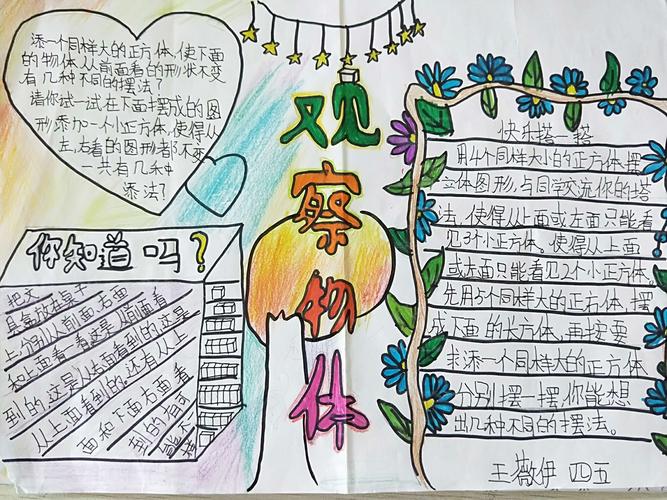 添一个同样大的正方体,使下面
的物体从前面看的形状不变
有几种不同的摆法?
请你试一试在下面摆成的图
形添加一个小正方体,使得从
左,右看的图形者都不变
一共有几种
添法?
观察物体
你知道吗?
把文
具盒放在桌子
上分别从前面右面
和上面看,看这是从前面看
到的,这是从右面看到的,这是
从上面看到的。还有从上
面和下面右面看
到的
快乐搭一搭
用4个同样大小的正方体,摆
立体图形,与同学交流你的搭
法,使得从上面或左面只能看
见3个小正方体。使得从上面
或左面只能看见2个小正方体。
先用5个同样大的正方体,摆
成下面的长方体,再按要
求添一个同样大的正方体
分别摆一摆,你能想
出几种不同的摆法。
王薇伊 四五